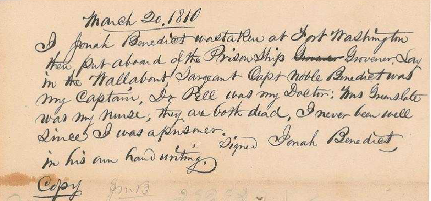 March 20, 1810
I Jonah Benedict was taken at Fort Washington
then put aboard of the Prison Ship Grovener, Lay
in the Wallabout Sargeant Capt Noble Benedict was
my Captain, Dr Pell was my Doctor;
was my nurse, they are both dead, I never been well
since I was a prisoner.
Signed Jonah Benedict
in his own hand writing.
Copy